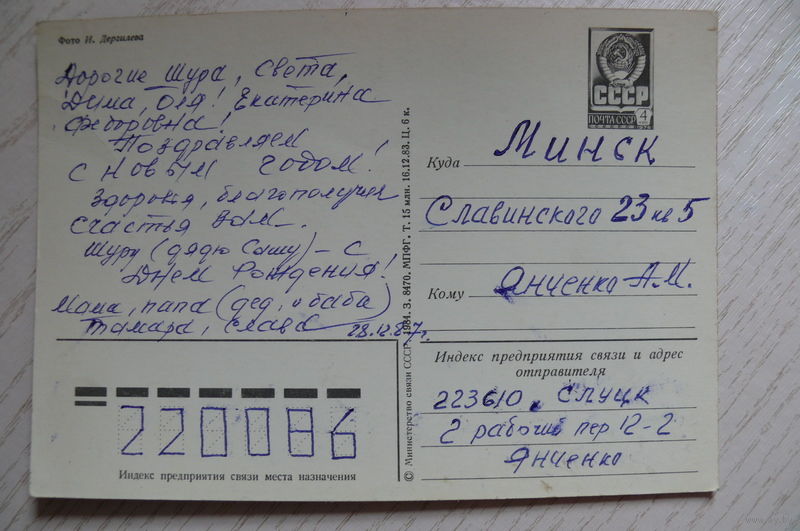 Фото И. Дергилева
Дорогие Шура, Света,
Дима, Оля! Екатерина
Федоровна!
Поздравляем
с Новым годом!
Здоровья, благополучия
счастья Вам.
Шуру (дядю Сашу) – с
Днем Рождения!
Мама, папа (дед и баба)
Тамара, Слава 28.12.87г.
220086
Индекс предприятия связи места назначения
© Министерство связи СССР. 1984. З. 8470. МПФГ. Т. 15 млн. 16.12.83. Ц. 6 к.
СССР
ПОЧТА СССР 4
Куда Минск
Славинского 23 кв 5
Кому Янченко А.М.
Индекс предприятия связи и адрес
отправителя
223610, Слуцк
2 рабочий пер 12-2
Янченко